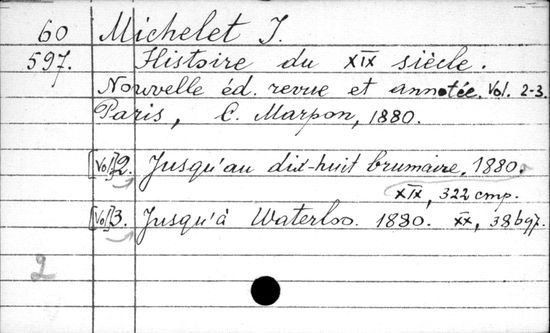 60 Michelet J.
597. Histoire du XIX siècle.
Nouvelle éd. revue et annotée. Vol. 2-3.
Paris, C. Marpon, 1880.
[Vol.] 2. Jusqu'au dix-huit brumaire. 1880.
XIX, 322 cmp.
[Vol.] 3. Jusqu'à Waterloo. 1880. XX,
2